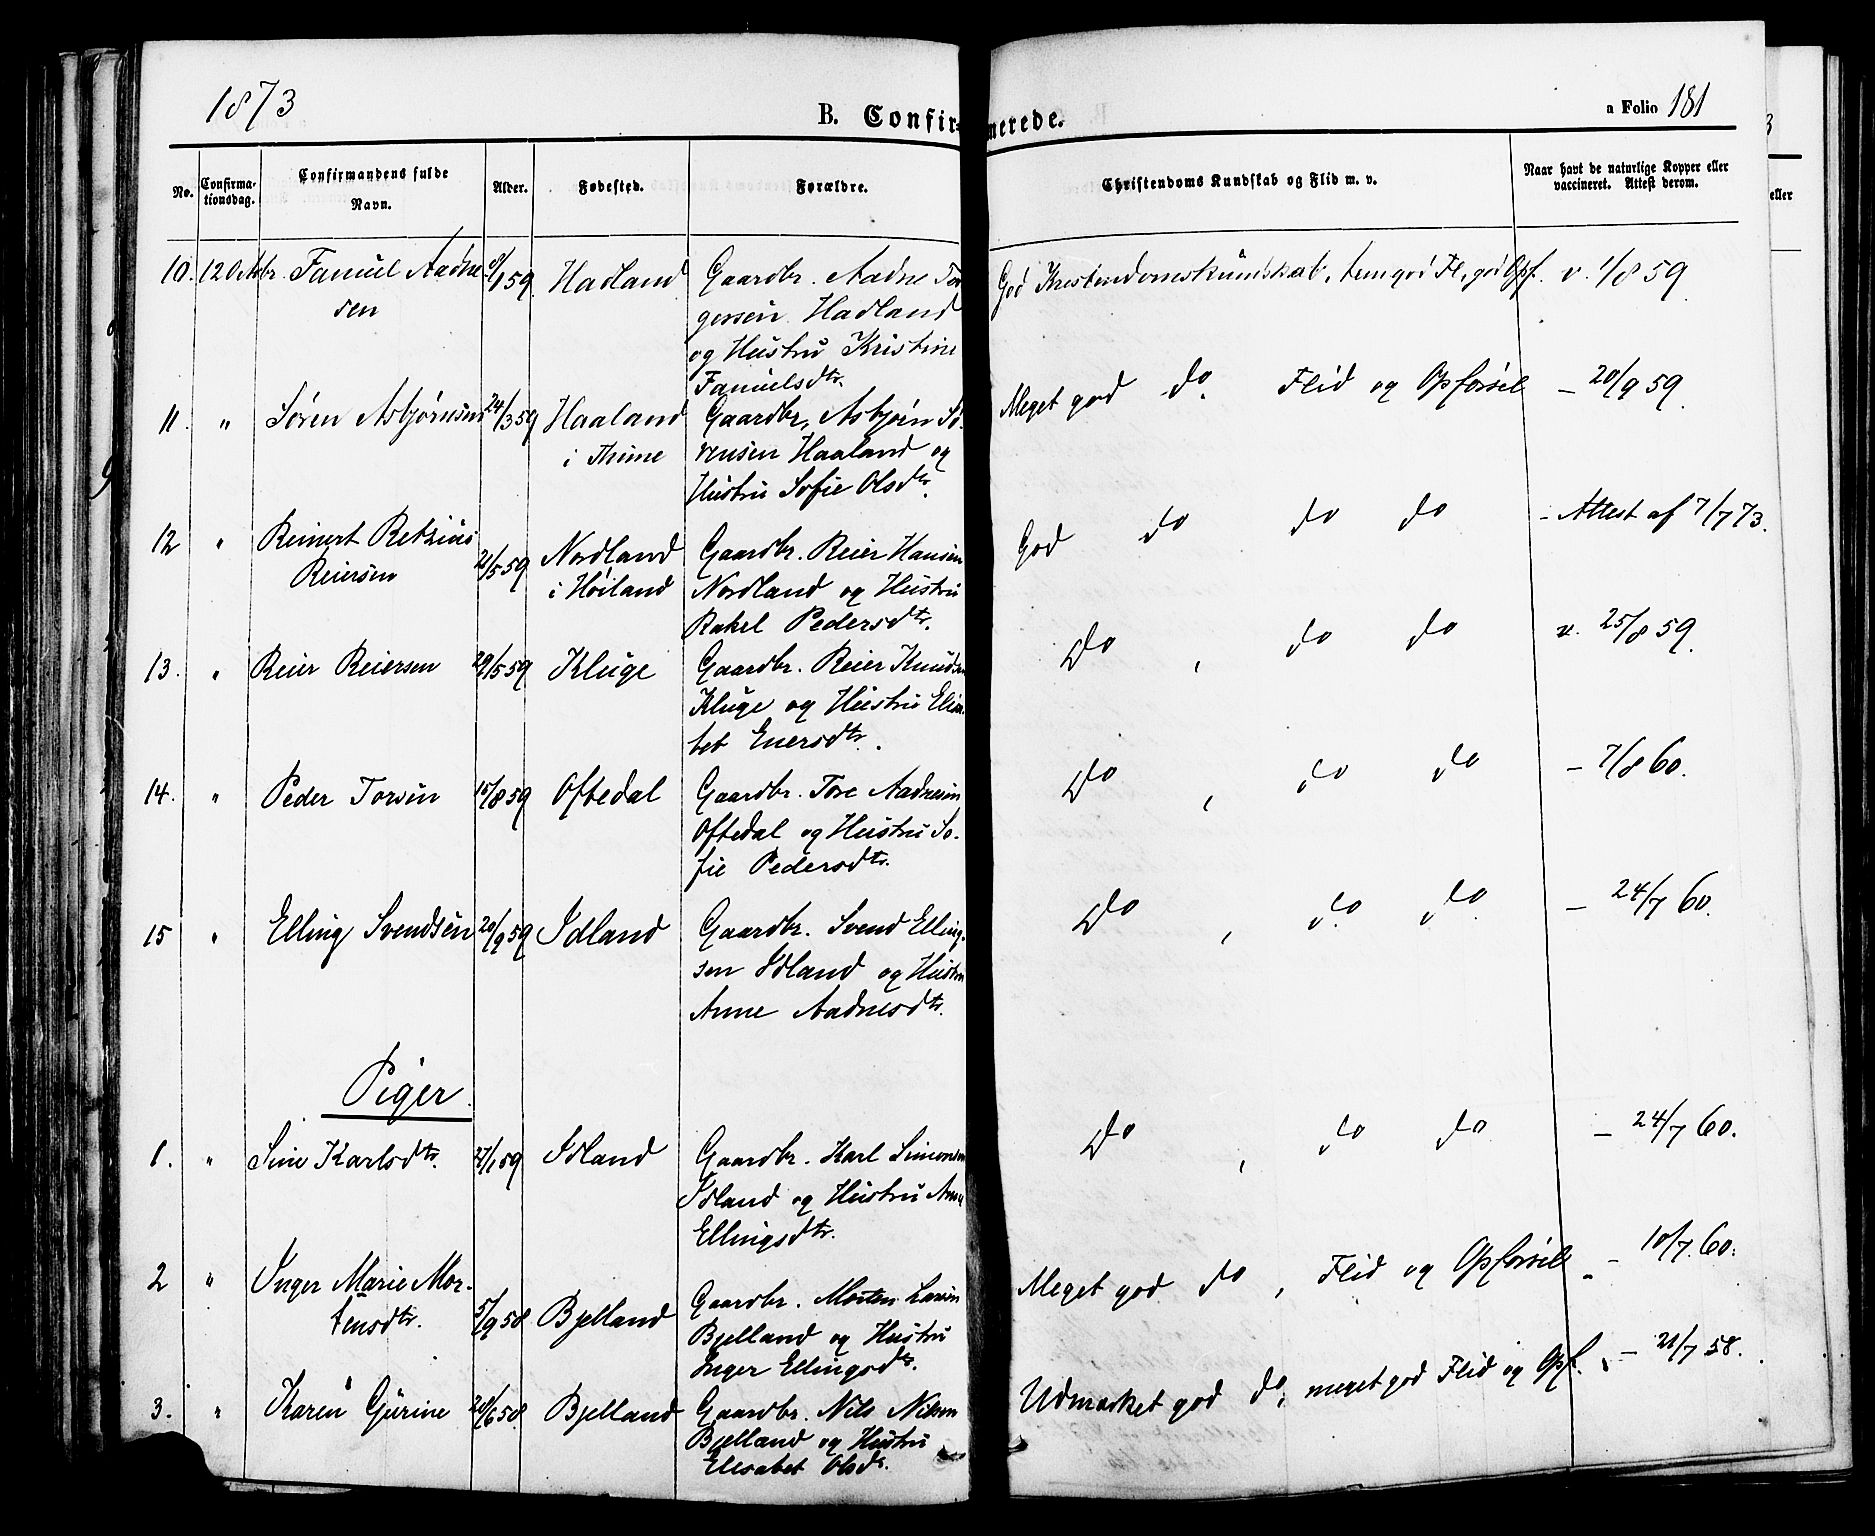 1873
B. Confirmerede.
a Folio 181
No.
Confirmationsdag.
Confirmandens fulde Navn.
Alder.
Fødested.
Forældre.
Christendoms Kundskab og Flid m. v.
Naar havt de naturlige Kopper eller vaccineret. Attest derom.
10. 12 Octbr. Samuel Aadne- /1 59 Hadland Gaardbr. Aadne Tor God Kristendomskundskab, temgod Fl., god Opf. v. 1/8 59.
sen gersen Hadland
og Hustru Kristine
Samuelsdtr.
11. " Søren Asbjørnsen 24/3 59 Haaland Gaardbr. Asbjørn Sø- Meget god do. Flid og Opførsel – 20/9 59.
i Thime rensen Haaland og
Hustru Sofie Olsdtr.
12 " Reinert Retzius 21/5 59 Nordland Gaardbr. Reier Hansen God do do do – Attest af 7/7 73.
Reiersen i Høiland Nordland og Hustru
Rakel Pedersdtr.
13. " Reier Reiersen 29/5 59 Kluge Gaardbr. Reier Knudsen Do , do do v. 25/8 59.
Kluge og Hustru Elisa-
bet Enersdtr.
14. " Peder Torsen 15/8 59 Oftedal Gaardbr. Tore Aadnesen Do , do do – 7/8 60.
Oftedal og Hustru So-
fie Pedersdtr.
15 " Elling Svendsen 20/9 59 Idland Gaardbr. Svend Elling- Do , do do – 24/7 60.
sen Idland og Hustru
Anne Aadnesdtr.
Piger.
1. " Sine Karlsdtr. 27/1 59 Idland Gaardbr. Karl Simonsen Do , do do – 24/7 60.
Idland og Hustru Anna
Ellingsdtr.
2 " Inger Marie Mor- 5/9 58 Bjelland Gaardbr. Morten Larsen Meget god do , Flid og Opførsel – 10/7 60.
tensdtr. Bjelland og Hustru
Inger Ellingsdtr.
3. " Karen Gurine 28/6 58 Bjelland Gaardbr. Nils Nilsen Udmærket god do, meget god Flid og Opf. – 21/7 58.
Bjelland og Hustru
Elisabet Olsdr.